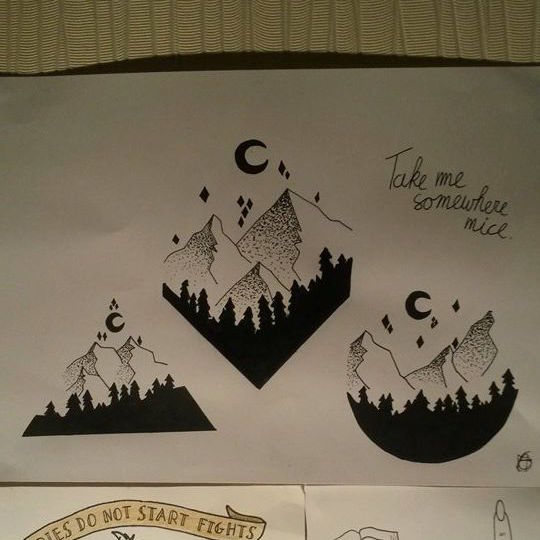 Take me
somewhere
mice.
DO NOT START FIGHTS